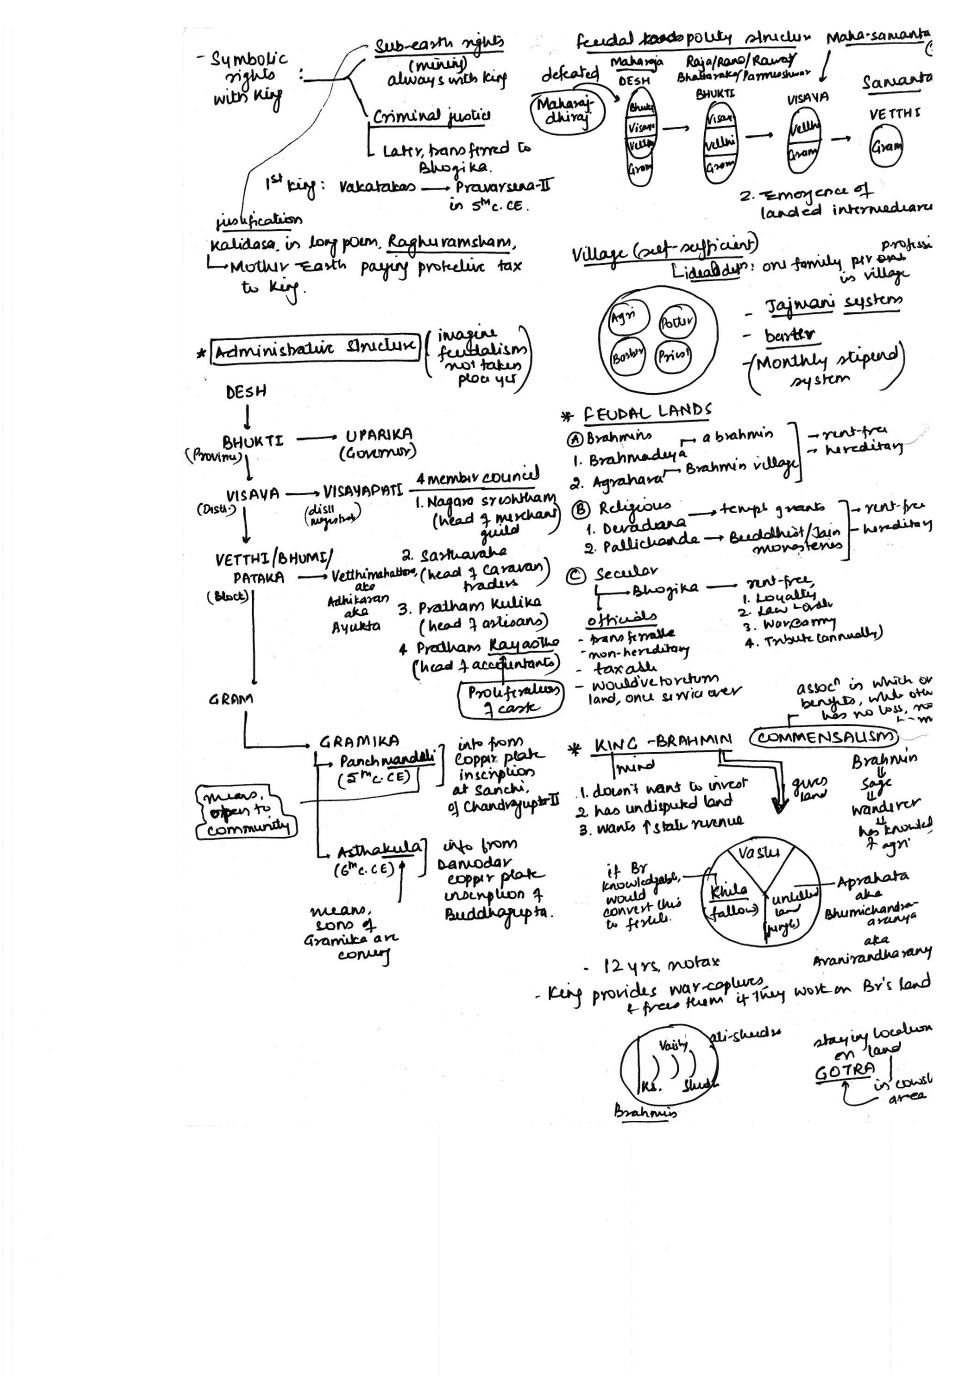 - Symbolic
rights
with King
:
Sub-earth rights
(mining)
always with King
Criminal justice
Later, transferred to
Bhogika.
1st King: Vakatakas → Pravarsena-II
in 5th c. CE.
justification
Kalidasa, in long poem, Raghuramsham,
→ Mother Earth paying protective tax
to King.
* Administrative structure (imagine
feudalism
not taken
place yet)
DESH
BHUKTI → UPARIKA
(Province) (Governor)
VISAYA → VISAYAPATI
(Distt.) (distt
magistrate)
4 member council
1. Nagara sreshtham
(head of merchant
guild)
2. Sarthavaha
(head of caravan
traders)
3. Pratham Kulika
(head of artisans)
4 Pratham Kayastha
(head of accountants)
Proliferation
of caste
VETTHI/BHUMI/
PATAKA → Vetthimahattara
(Block) aka
Adhikaran
aka
Ayukta
GRAM
GRAMIKA
Panchmandali
(5th c. CE)
info from
copper plate
inscription
at Sanchi,
of Chandragupta-II
means,
open to
community
Asthakula
(6th c. CE)
info from
Damodar
copper plate
inscription of
Buddhagupta.
means,
sons of
Gramika are
coming
feudal polity structure
Maha-samanta
defeated
Maharaj-
dhiraj
Maharaja
DESH
Bhukti
Visaya
Vetthi
Gram
Raja/Rana/Rawat/
Bhattaraka/Parmeshwar
BHUKTI
Visaya
Vetthi
Gram
VISAYA
Vetthi
Gram
Samanta
VETTHI
Gram
2. Emergence of
landed intermediare
Village (self-sufficient)
ideal defn: one family per professi
in village
Agri
Potter
Barber
Priest
- Jajmani system
- barter
- (Monthly stipend
system)
* FEUDAL LANDS
A Brahmins
1. Brahmadeya → a brahmin
2. Agrahara → Brahmin village
→ rent-free
→ hereditary
B Religious
1. Devadana → temple grants
2. Pallichanda → Buddhist/Jain
monasteries
→ rent-free
→ hereditary
C Secular
→ Bhogika → rent-free
1. Loyalty
2. Law & order
3. War & army
4. Tribute (annually)
officials
- transferable
- non-hereditary
- taxable
- would've to return
land, once service over
assocn in which or
benefits, while othe
has no loss, no
COMMENSALISM
* KING - BRAHMIN
mind
1. doesn't want to invest
2 has undisputed land
3. wants ↑ state revenue
gives
land
Brahmin
Sage
Wanderer
has knowled
of agri
if Br
knowledgable,
would
convert this
to fertile.
Vastu
Khila
(fallow)
untilled
land
(jungle)
Aprahata
aka
Bhumichandra-
aranya
aka
Avanirandharany
- 12 yrs, no tax
- King provides war-captures
& frees them if they work on Br's land
Vaishy
ati-shudra
Ks.
Shudr
Brahmin
staying location
on land
GOTRA
in cowsh
area